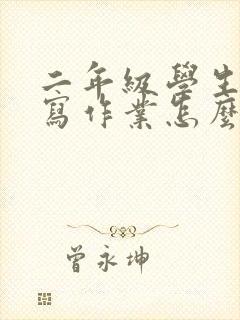 二年級學生
寫作業怎麼
曾永坤